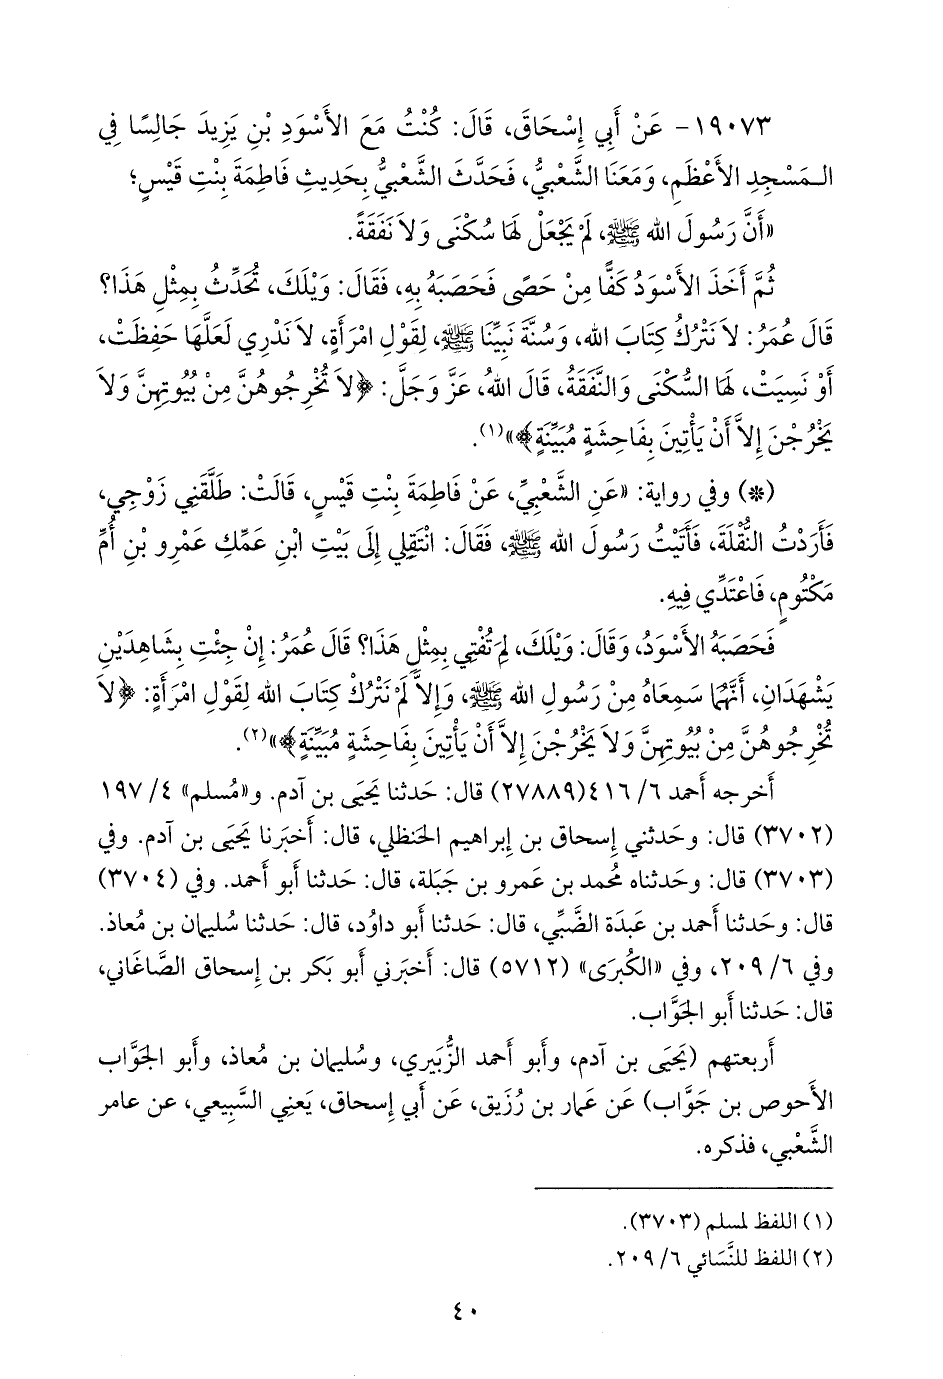 ١٩٠٧٣- عَنْ أَبِي إِسْحَاقَ، قَالَ: كُنْتُ مَعَ الأَسْوَدِ بْنِ يَزِيدَ جَالِسًا فِي
الـمَسْجِدِ الأَعْظَمِ، وَمَعَنَا الشَّعْبِيُّ، فَحَدَّثَ الشَّعْبِيُّ بِحَدِيثِ فَاطِمَةَ بِنْتِ قَيْسٍ؛
«أَنَّ رَسُولَ الله ﷺ، لَمْ يَجْعَلْ لَهَا سُكْنَى وَلاَ نَفَقَةً.
ثُمَّ أَخَذَ الأَسْوَدُ كَفًّا مِنْ حَصًى فَحَصَبَهُ بِهِ، فَقَالَ: وَيْلَكَ، تُحَدِّثُ بِمِثْلِ هَذَا؟
قَالَ عُمَرُ: لاَ نَتْرُكُ كِتَابَ الله، وَسُنَّةَ نَبِيِّنَا ﷺ، لِقَوْلِ امْرَأَةٍ، لاَ نَدْرِي لَعَلَّهَا حَفِظَتْ،
أَوْ نَسِيَتْ، لَهَا السُّكْنَى وَالنَّفَقَةُ، قَالَ اللهُ، عَزَّ وَجَلَّ: ﴿لاَ تُخْرِجُوهُنَّ مِنْ بُيُوتِهِنَّ وَلاَ
يَخْرُجْنَ إِلاَّ أَنْ يَأْتِينَ بِفَاحِشَةٍ مُبَيِّنَةٍ﴾»(١).
(*) وفي رواية: «عَنِ الشَّعْبِيِّ، عَنْ فَاطِمَةَ بِنْتِ قَيْسٍ، قَالَتْ: طَلَّقَنِي زَوْجِي،
فَأَرَدْتُ النُّقْلَةَ، فَأَتَيْتُ رَسُولَ الله ﷺ، فَقَالَ: انْتَقِلِي إِلَى بَيْتِ ابْنِ عَمِّكِ عَمْرِو بْنِ أُمِّ
مَكْتُومٍ، فَاعْتَدِّي فِيهِ.
فَحَصَبَهُ الأَسْوَدُ، وَقَالَ: وَيْلَكَ، لِمَ تُفْتِي بِمِثْلِ هَذَا؟ قَالَ عُمَرُ: إِنْ جِئْتِ بِشَاهِدَيْنِ
يَشْهَدَانِ، أَنَّهُمَا سَمِعَاهُ مِنْ رَسُولِ الله ﷺ، وَإِلاَّ لَمْ نَتْرُكْ كِتَابَ الله لِقَوْلِ امْرَأَةٍ: ﴿لاَ
تُخْرِجُوهُنَّ مِنْ بُيُوتِهِنَّ وَلاَ يَخْرُجْنَ إِلاَّ أَنْ يَأْتِينَ بِفَاحِشَةٍ مُبَيِّنَةٍ﴾»(٢).
أَخرجه أَحمد ٦/ ٤١٦(٢٧٨٨٩) قال: حَدثنا يَحيَى بن آدم. و«مُسلم» ٤/ ١٩٧
(٣٧٠٢) قال: وحَدثني إِسحاق بن إِبراهيم الحَنظلي، قال: أَخبَرنا يَحيَى بن آدم. وفي
(٣٧٠٣) قال: وحَدثناه مُحمد بن عَمرو بن جَبَلة، قال: حَدثنا أَبو أَحمد. وفي (٣٧٠٤)
قال: وحَدثنا أَحمد بن عَبدَة الضَّبِّي، قال: حَدثنا أَبو داوُد، قال: حَدثنا سُليمان بن مُعاذ.
وفي ٦/ ٢٠٩، وفي «الكُبرَى» (٥٧١٢) قال: أَخبَرني أَبو بَكر بن إِسحاق الصَّاغَاني،
قال: حَدثنا أَبو الجَوَّاب.
أَربعتهم (يَحيَى بن آدم، وأَبو أَحمد الزُّبَيري، وسُليمان بن مُعاذ، وأَبو الجَوَّاب
الأَحوص بن جَوَّاب) عَن عَمار بن رُزَيق، عَن أَبي إِسحاق، يَعنِي السَّبِيعي، عَن عامر
الشَّعْبي، فذكره.
(١) اللفظ لمسلم (٣٧٠٣).
(٢) اللفظ للنَّسَائي ٦/ ٢٠٩.
٤٠